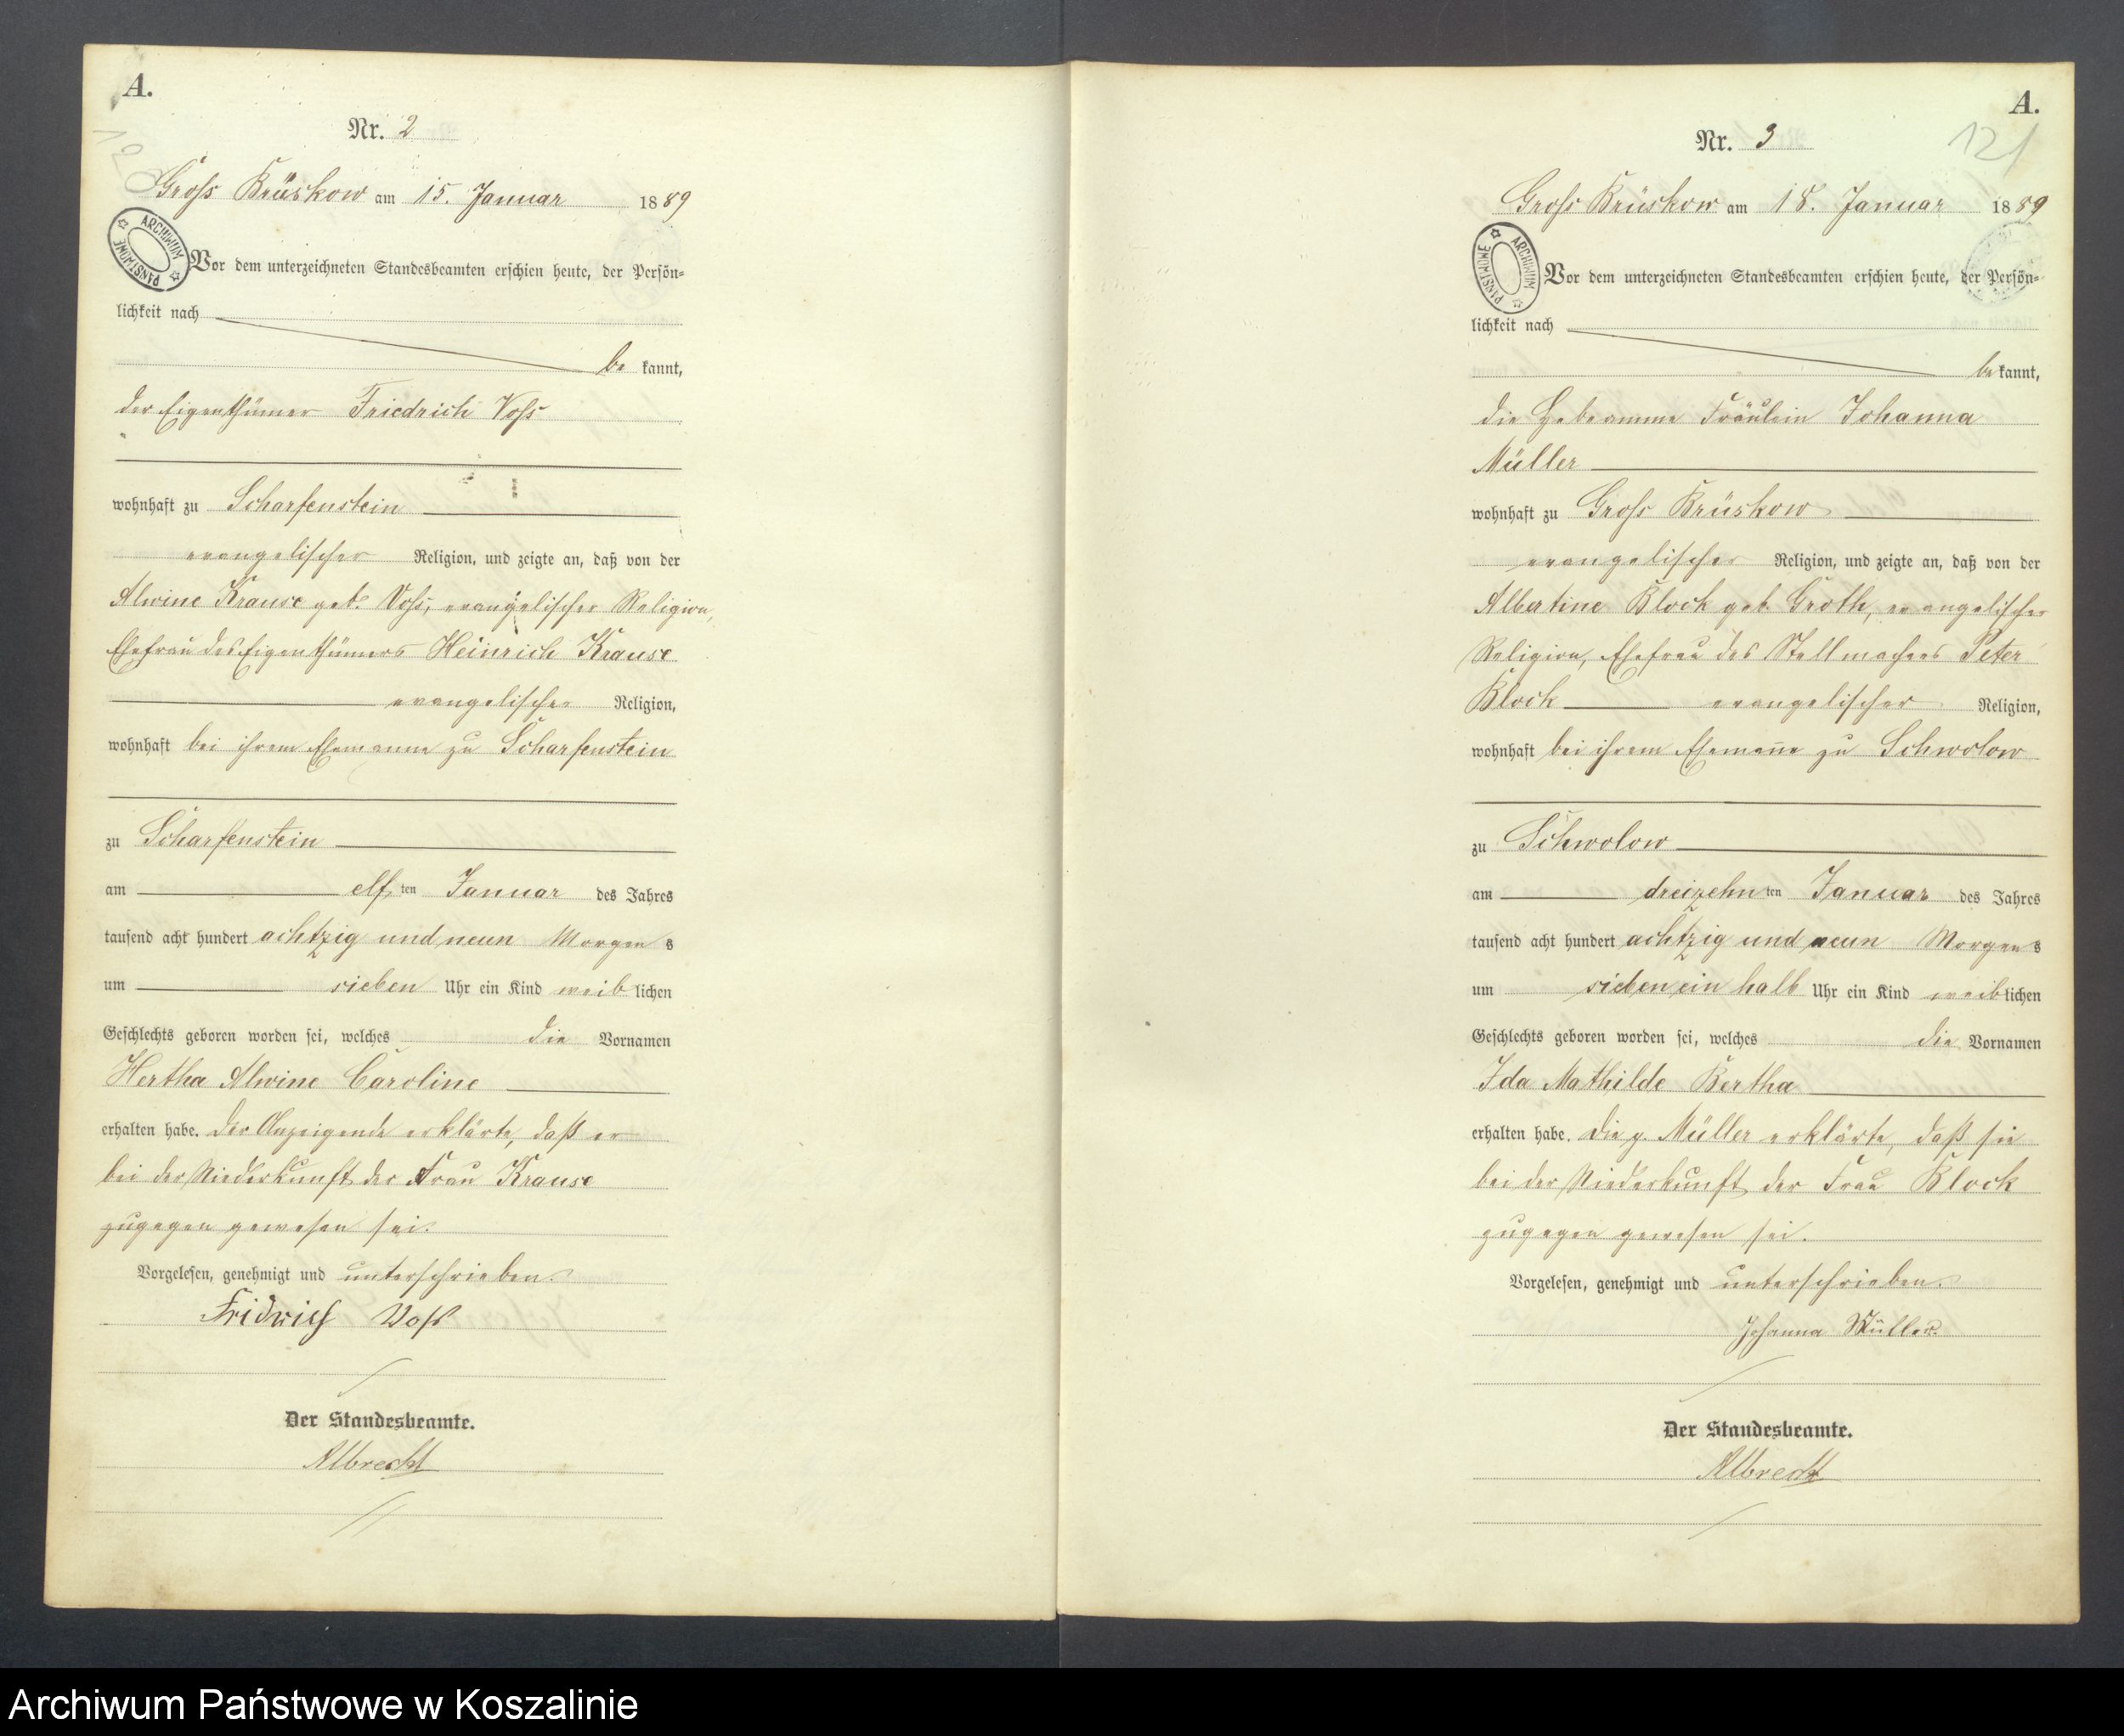 A.
Nr. 2
Gross Brüskow am 15. Januar 1889
ARCHIWUM PAŃSTWOWE
Vor dem unterzeichneten Standesbeamten erschien heute, der Persön=
lichkeit nach
be kannt,
der Eigenthümer Friedrich Voss
wohnhaft zu Scharfenstein
evangelischer Religion, und zeigte an, daß von der
Alwine Krause geb. Voss, evangelischer Religion,
Ehefrau des Eigenthümers Heinrich Krause
evangelischer Religion,
wohnhaft bei ihrem Ehemanne zu Scharfenstein
zu Scharfenstein
am elf ten Januar des Jahres
tausend acht hundert achtzig und neun Morgens
um sieben Uhr ein Kind weib lichen
Geschlechts geboren worden sei, welches die Vornamen
Hertha Alwine Caroline
erhalten habe. Der Anzeigende erklärte, daß er
bei der Niederkunft der Frau Krause
zugegen gewesen sei.
Vorgelesen, genehmigt und unterschrieben.
Fridrich Voß
Der Standesbeamte.
Albrecht
A.
121
Nr. 3
Gross Brüskow am 18. Januar 1889
ARCHIWUM PAŃSTWOWE
Vor dem unterzeichneten Standesbeamten erschien heute, der Persön=
lichkeit nach
be kannt,
die Hebeamme Fräulein Johanna
Müller
wohnhaft zu Gross Brüskow
evangelischer Religion, und zeigte an, daß von der
Albertine Block geb. Groth, evangelischer
Religion, Ehefrau des Stellmachers Peter
Block evangelischer Religion,
wohnhaft bei ihrem Ehemañe zu Schwolow
zu Schwolow
am dreizehn ten Januar des Jahres
tausend acht hundert achtzig und neun Morgens
um sieben ein halb Uhr ein Kind weib lichen
Geschlechts geboren worden sei, welches die Vornamen
Ida Mathilde Bertha
erhalten habe. Die p. Müller erklärte, daß sie
bei der Niederkunft der Frau Block
zugegen gewesen sei.
Vorgelesen, genehmigt und unterschrieben.
Johanna Müller.
Der Standesbeamte.
Albrecht
Archiwum Państwowe w Koszalinie